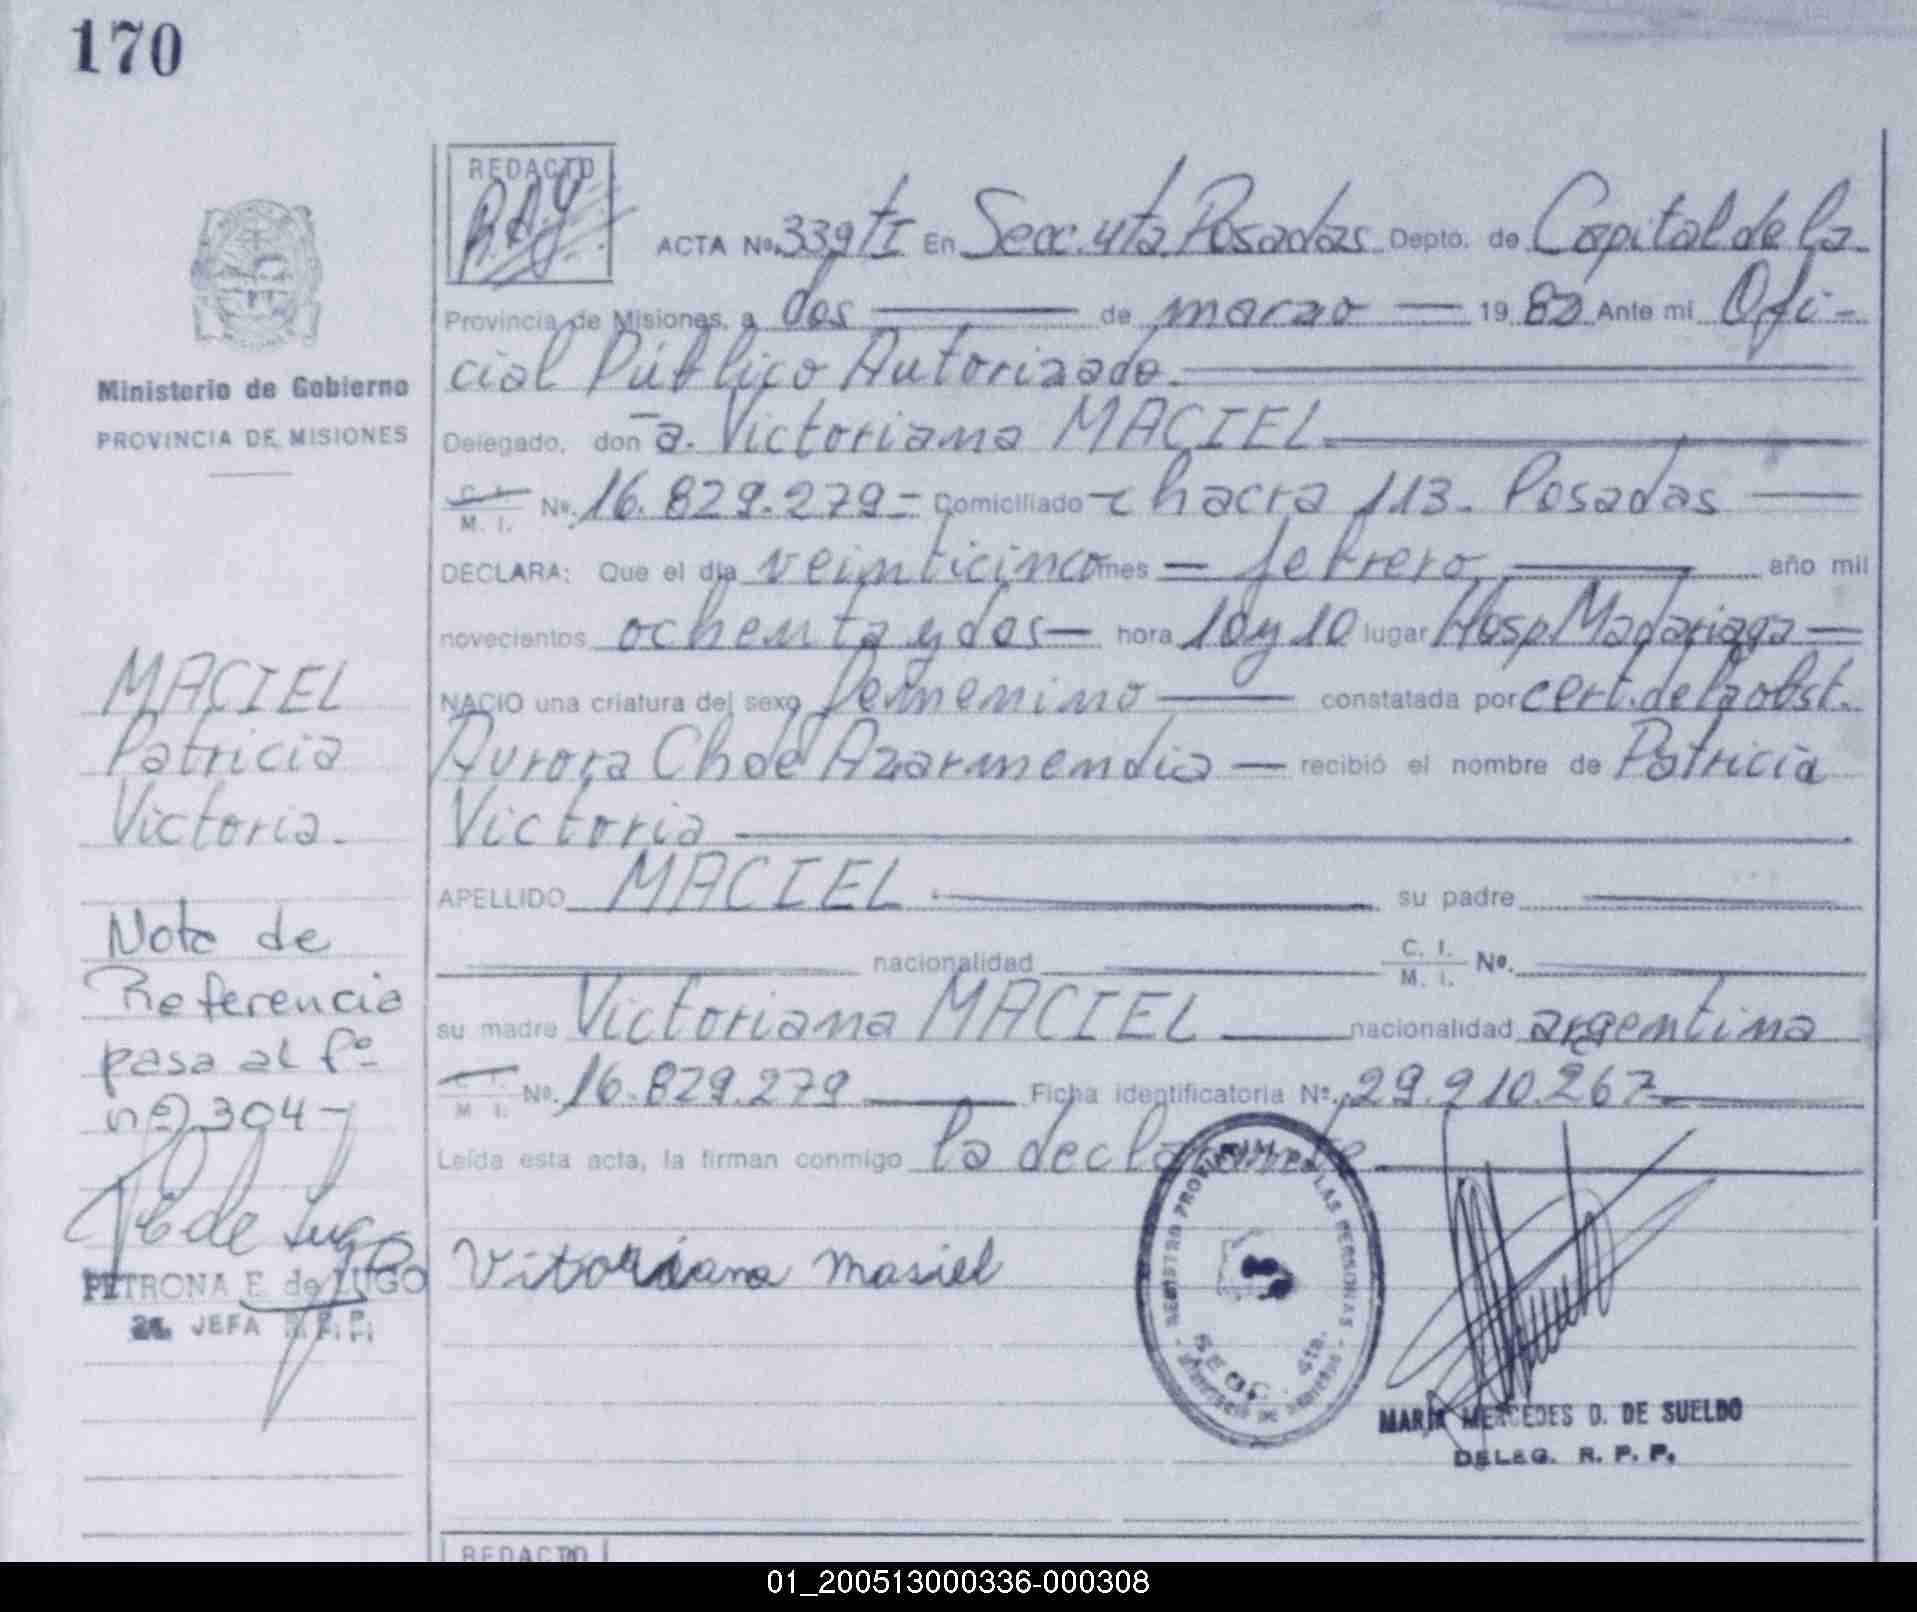 170
REDACTO
ACTA Nº. 339 tI En Secc. 4ta. Posadas Depto. de Capital de la
Provincia de Misiones, a dos de marzo 19 82 Ante mi Ofi-
cial Público Autorizado.
Delegado, don a. Victoriana MACIEL
C. I. M. I. Nº. 16.829.279 Domiciliado chacra 113. Posadas
DECLARA: Que el día veinticinco mes febrero año mil
novecientos ochenta y dos hora 10 y 10 lugar Hosp. Madariaga
NACIO una criatura del sexo femenino constatada por cert. de la obst.
Aurora Ch de Azarmendia recibió el nombre de Patricia
Victoria
APELLIDO MACIEL su padre
nacionalidad C. I. M. I. Nº.
su madre Victoriana MACIEL nacionalidad argentina
C. I. M. I. Nº. 16.829.279 Ficha identificatoria Nº. 29.910.267
Leída esta acta, la firman conmigo la declarante
Vitoriana Masiel
REGISTRO PROVINCIAL DE LAS PERSONAS
SECC. 4ta.
MARIA MERCEDES D. DE SUELDO
DELEG. R. P. P.
Ministerio de Gobierno
PROVINCIA DE MISIONES
MACIEL
Patricia
Victoria.
Nota de
Referencia
pasa al fº
nº 304-
PETRONA E. de LUGO
JEFA
REDACTO
01_200513000336-000308